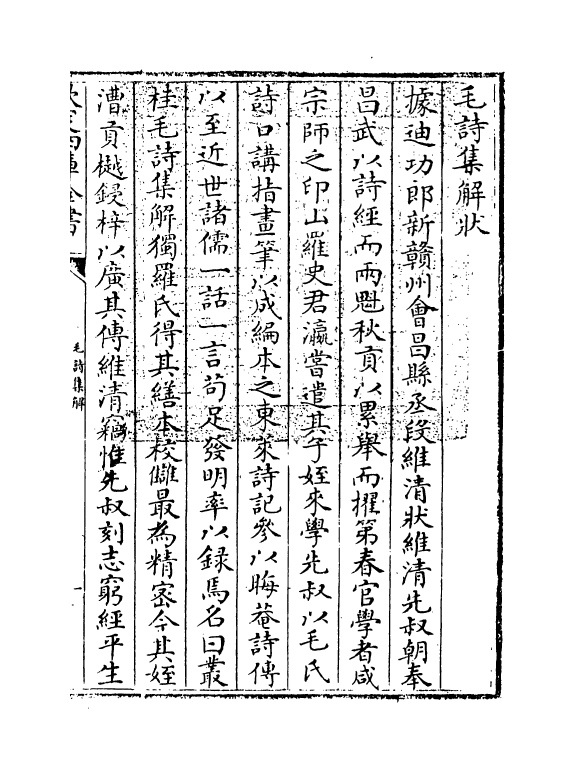 毛詩集解狀
據迪功郎新贛州會昌縣丞段維清狀維清先叔朝奉
昌武以詩經而兩魁秋貢以累舉而擢第春官學者咸
宗師之卬山羅史君瀛嘗遣其子姪來學先叔以毛氏
詩口講指畫筆以成編本之東萊詩記參以晦菴詩傳
以至近世諸儒一話一言苟足發明率以錄焉名曰叢
桂毛詩集解獨羅氏得其繕本校讎最為精密今其姪
漕貢樾鋟梓以廣其傳維清竊惟先叔刻志窮經平生
欽定四庫全書
毛詩集解
一